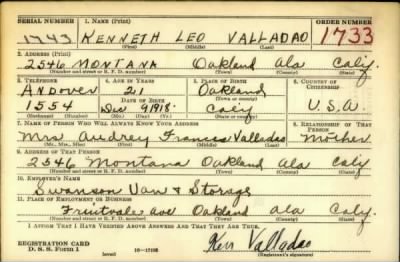 SERIAL NUMBER 1. NAME (Print) ORDER NUMBER
1743 KENNETH LEO VALLADAO 1733
(First) (Middle) (Last)
2. ADDRESS (Print)
2546 MONTANA Oakland Ala Calif.
(Number and street or R. F. D. number) (Town) (County) (State)
3. TELEPHONE 4. AGE IN YEARS 5. PLACE OF BIRTH 6. COUNTRY OF CITIZENSHIP
Andover 21 Oakland
(Town or county)
DATE OF BIRTH
1554 Dec 9 1918 Calif U.S.A.
(Mo.) (Day) (Yr.) (State or country)
7. NAME OF PERSON WHO WILL ALWAYS KNOW YOUR ADDRESS 8. RELATIONSHIP OF THAT PERSON
Mrs Audrey Frances Valladao Mother
(Mr., Mrs., Miss) (First) (Middle) (Last)
9. ADDRESS OF THAT PERSON
2546 Montana Oakland Ala Calif
(Number and street or R. F. D. number) (Town) (County) (State)
10. EMPLOYER'S NAME
Swanson Van & Storage
11. PLACE OF EMPLOYMENT OR BUSINESS
Fruitvale Ave Oakland Ala Calif.
(Number and street or R. F. D. number) (Town) (County) (State)
I AFFIRM THAT I HAVE VERIFIED ABOVE ANSWERS AND THAT THEY ARE TRUE.
REGISTRATION CARD
D. S. S. Form 1 (over) Ken Valladao
(Registrant's signature)